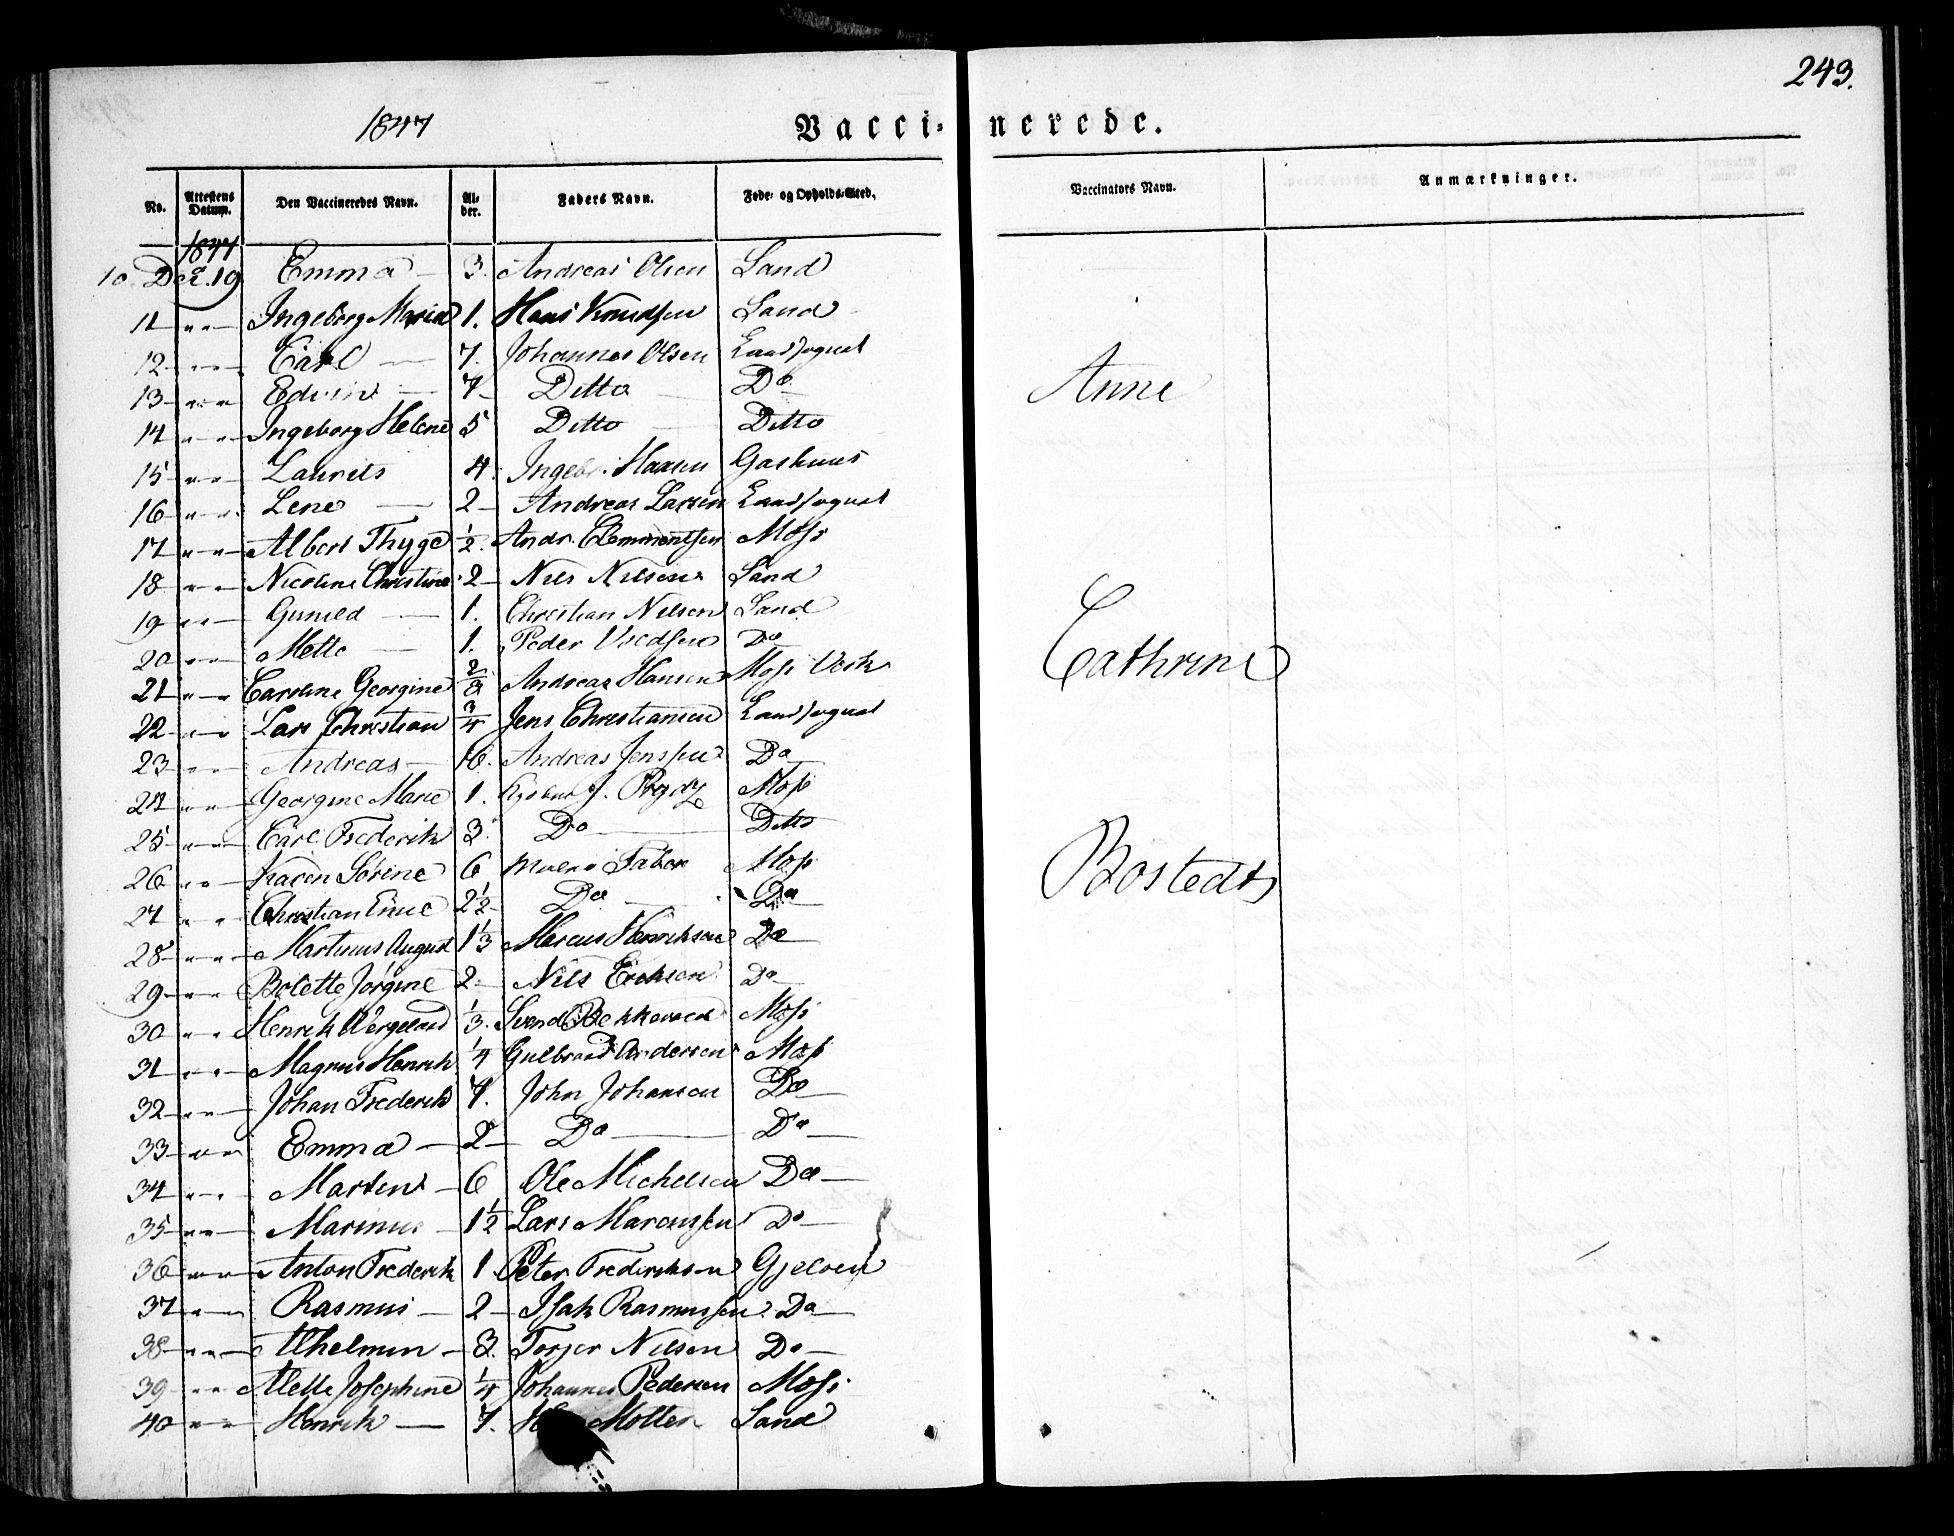 243.
1847
Vacci- nerede.
No. Attestens Datum. Den Vaccineredes Navn. Al- der. Faders Navn. Føde- og Opholds-Sted. Vaccinators Navn. Anmærkninger.
1847
10 Dec. 19 Emma — 3. Andreas Olsen Land
11 " " Ingeborg Maria 1. Hans Knudsen Land
12 " " Carl — 7. Johannes Olsen Landsognet
13 " " Edvin — 7 Ditto Do
Anne
14 " " Ingeborg Helene 5 Ditto Ditto
15 " " Laurits 4 Ingebr. Hansen
16 " " Lene — 2 Andreas Larsen Landsognet
17 " " Albert Thyge ½ Andr. Clemmentsen Moss
18 " " Nicoline Christine 2 Nils Nilsen Land
19 " " Gunild — 1. Christian Nilsen Land
20 " " Mette — 1. Peder Do
Cathrine
21 " " Caroline Georgine 2/3 Andreas Hansen Moss Verk
22 " " Lars Christian 3/4 Jens Christiansen Landsognet
23 " " Andreas — Andreas Jensen Do
24 " " Georgine Marie 1. Moss
25 " " Carl Frederik 3. Do Ditto
26 " " Karen Sørine 6 Moss
Bostedt
27 " " Christian 2½ Do Do
28 " " Martinus August 1 1/3 Marcus Henriksen Do
29 " " Bolette Jørgine 2 Nils Eriksen Do
30 " " Henrik Wergeland 1/3. Svend Moss
31 " " Magnus Henrik ¼ Gulbrand Andersen Moss
32 " " Johan Frederik 7. John Johansen Do
33 " " Emma — 2 Do Do
34 " " Martin — 6 Ole Michelsen Do
35 " " Marinus 1½ Lars Marcussen Do
36 " " Anton Frederik 1 Peter Frederiksen Gjeløen
37 " " Rasmus — 2 Isak Rasmussen Do
38 " " — 3. Torger Nilsen Do
39 " " Mette Josephine ¼ Johannes Pedersen Moss
40 " " Henrik — 7. Land